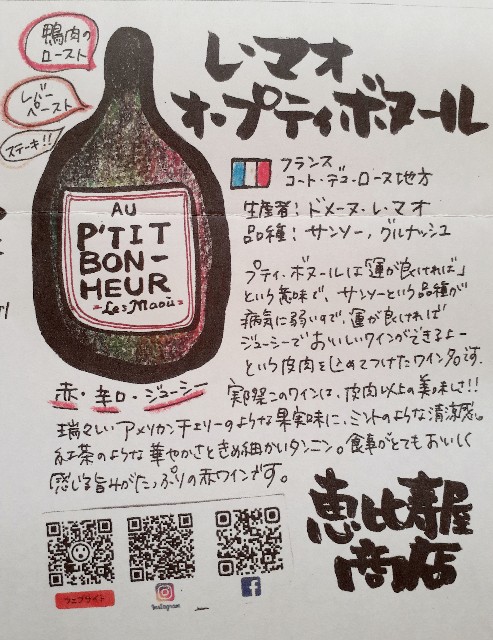 鴨肉の
ロースト
レバー
ペースト
ステーキ!!
レ・マオ
オ・プティ・ボヌール
AU
P'TIT
BON-
HEUR
Les Maoù
フランス
コート・デュ・ローヌ地方
生産者:ドメーヌ・レ・マオ
品種:サンソー,グルナッシュ
プティ・ボヌールは「運が良ければ」
という意味で、サンソーという品種が
病気に弱いので、運が良ければ
ジューシーでおいしいワインができるよー
という皮肉を込めてつけたワイン名です.
赤・辛口・ジューシー
実際このワインは、皮肉以上の美味しさ!!
瑞々しいアメリカンチェリーのような果実味に、ミントのような清涼感。
紅茶のような華やかさときめ細かいタンニン。食事がとてもおいしく
感じる旨みがたっぷりの赤ワインです。
恵比寿屋
商店
ウェブサイト
Instagram